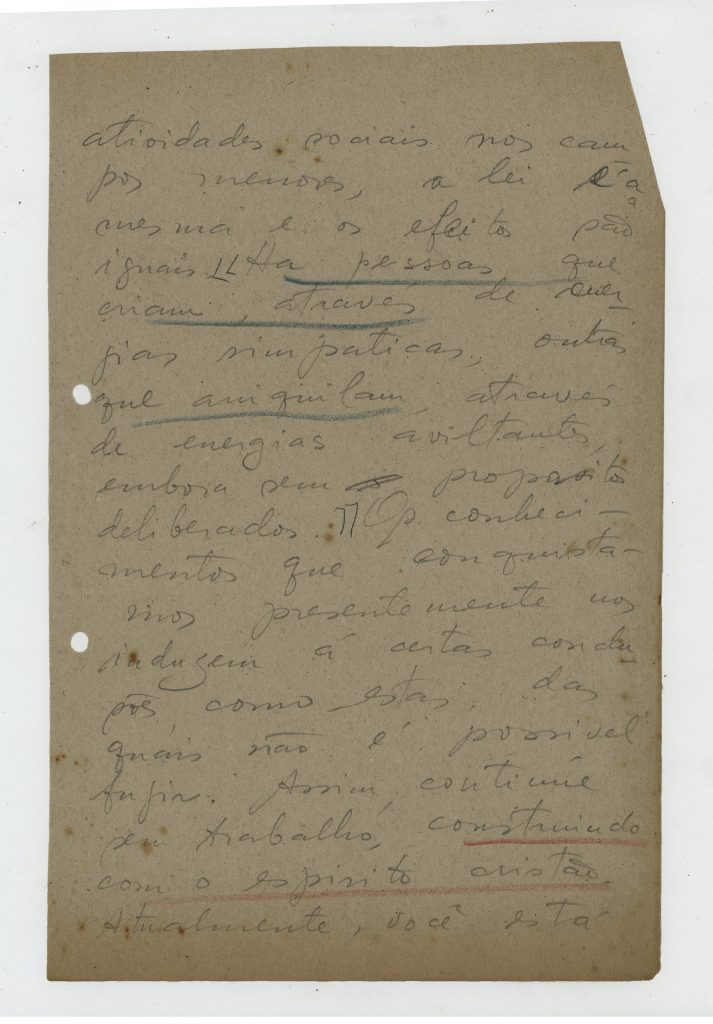 atividades sociais nos cam
pos menores, a lei é a
mesma e os efeitos são
iguais. Ha pessoas que
criam, através de ener-
gias simpaticas, outras
que aniquilam, através
de energias aviltantes,
embora sem propositos
deliberados. Os conheci-
mentos que conquista-
mos presentemente nos
induzem á certas conclu
sões como estas, das
quáis não é possivel
fugir. Assim, continúe
seu trabalho, construindo
com o espirito cristão.
Atualmente, você está